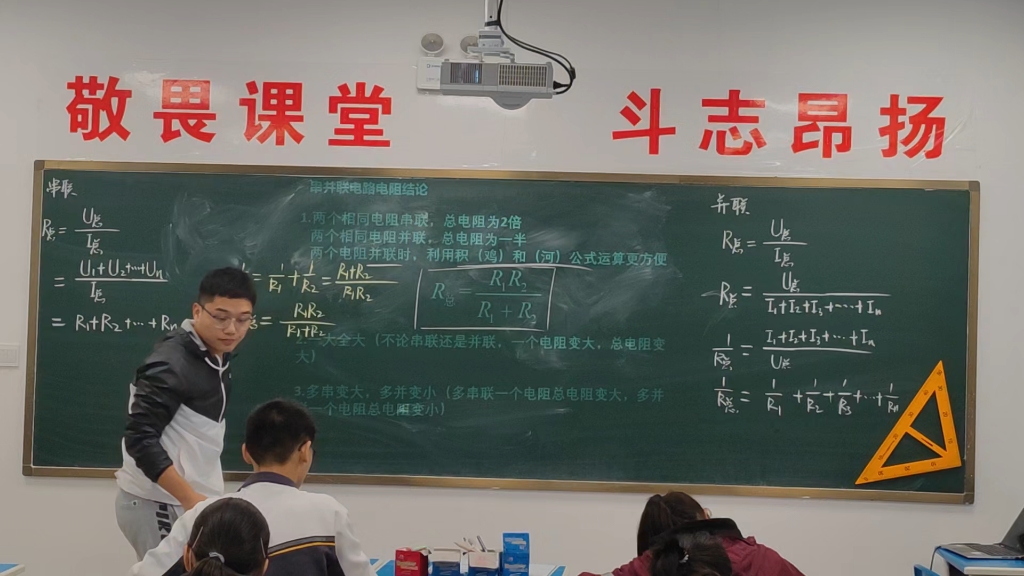 敬畏课堂
斗志昂扬
串联
R总 = U总 / I总
= U₁+U₂+…+Uₙ / I总
= R₁+R₂+…+Rₙ
串并联电路电阻结论
1.两个相同电阻串联,总电阻为2倍
两个相同电阻并联,总电阻为一半
两个电阻并联时,利用积(鸡)和(河)公式运算更方便
= 1/R₁ + 1/R₂ = R₁+R₂ / R₁R₂
= R₁R₂ / R₁+R₂
R总 = R₁R₂ / R₁+R₂
2.一大全大(不论串联还是并联,一个电阻变大,总电阻变
大)
3.多串变大,多并变小(多串联一个电阻总电阻变大,多并
一个电阻总电阻变小)
并联
R总 = U总 / I总
R总 = U总 / I₁+I₂+I₃+……+Iₙ
1/R总 = I₁+I₂+I₃+……+Iₙ / U总
1/R总 = 1/R₁ + 1/R₂ + 1/R₃ +…+ 1/Rₙ